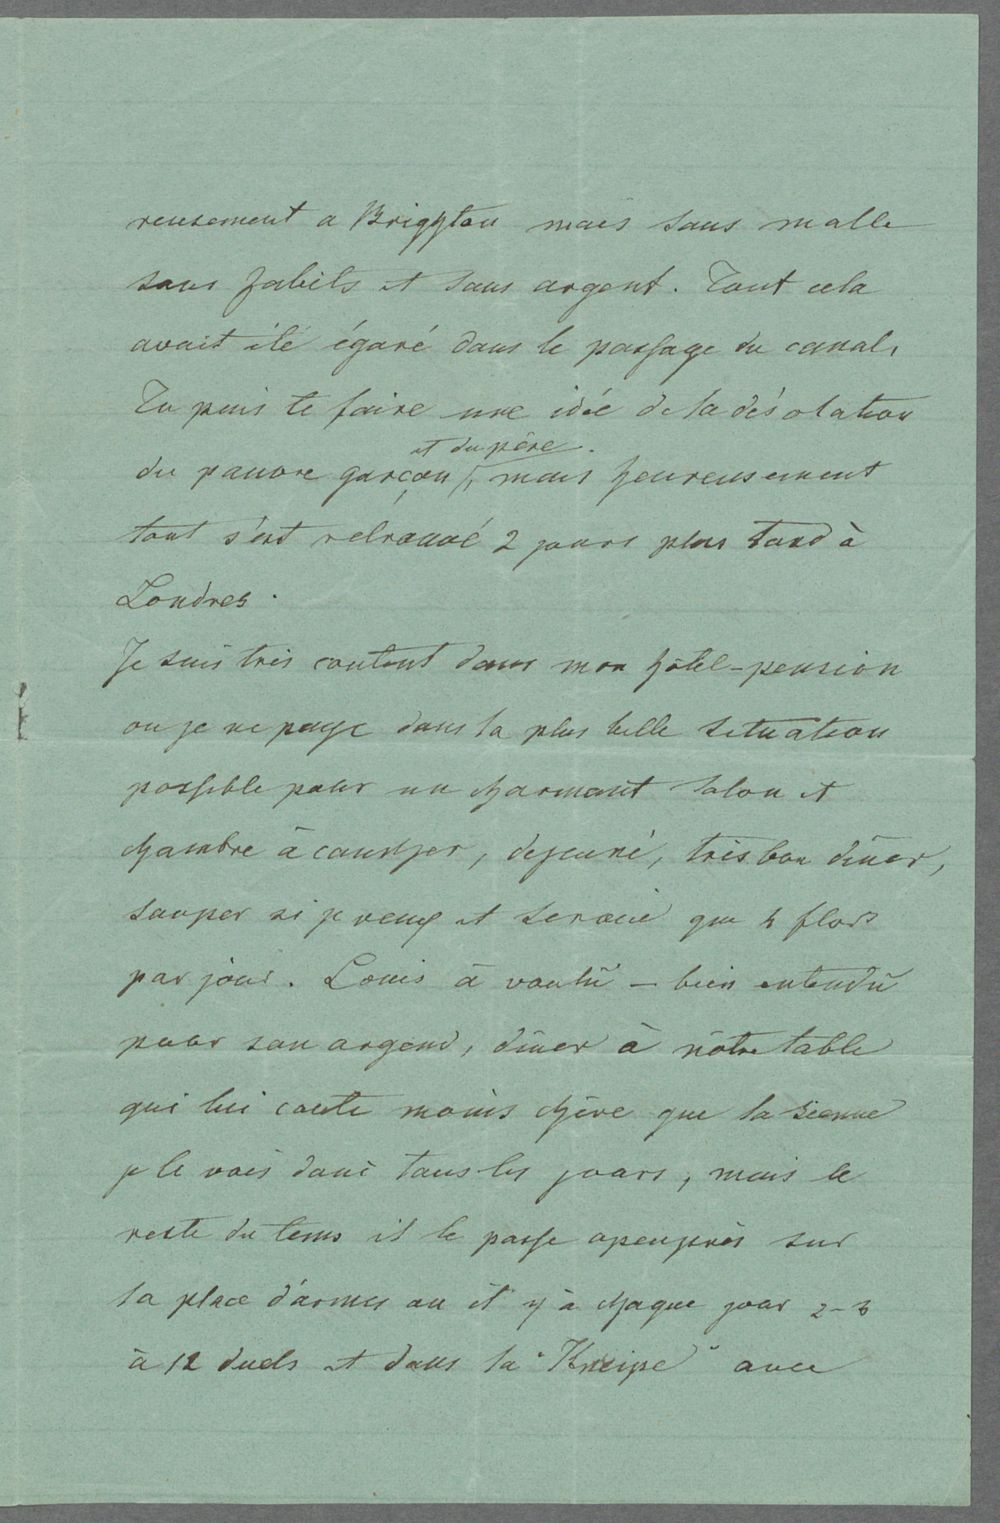 reusement a Brighton mais sans malle
sans habits et sans argent. Tout cela
avait été égaré dans le passage du canal.
Tu peus te faire une idée de la désolation
et du père.
du pauvre garçon, mais heureusement
tout s'est retrouvé 2 jours plus tard à
Londres.
Je suis très content dans mon hôtel-pension
ou je ne paye dans la plus belle situation
possible pour un charmant salon et
chambre à coucher, dejeuné, très bon dîner,
souper si je veux et service que 4 flors
par jour. Louis à voulu - bien entendu
pour son argend, dîner à nôtre table
qui lui coute moins chère que la sienne
je le vois donc tous les jours, mais le
reste du tems il le passe apeuprès sur
la place d'armes ou il y à chaque jour 2-3
à 12 duels et dans la "Kneipe" avec